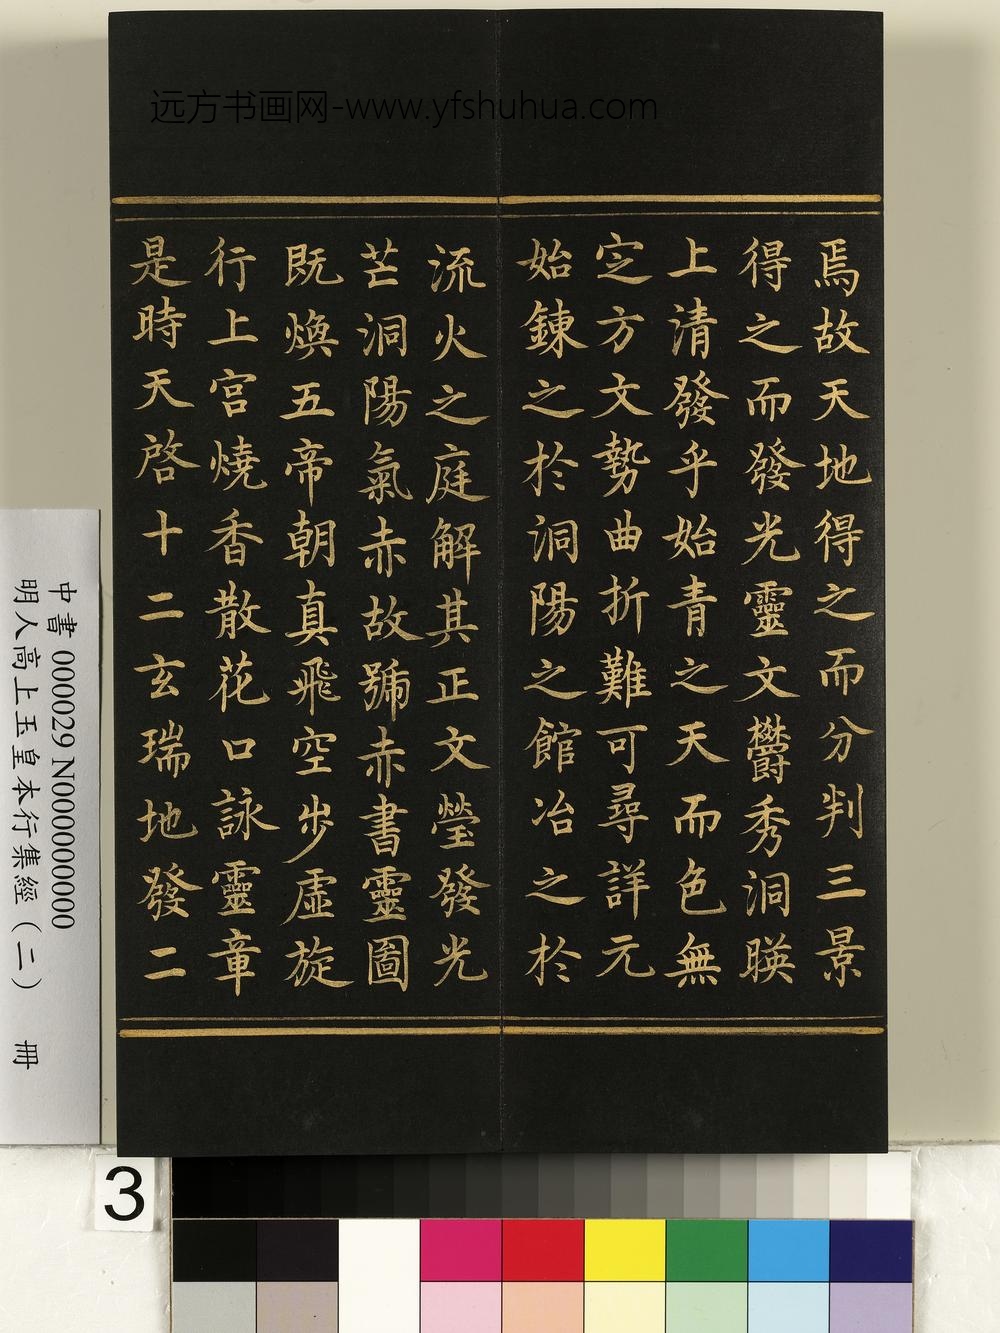 远方书画网-www.yfshuhua.com
焉故天地得之而分判三景
得之而發光靈文欎秀洞暎
上清發乎始青之天而色無
定方文勢曲折難可尋詳元
始鍊之於洞陽之館冶之於
流火之庭解其正文瑩發光
芒洞陽氣赤故號赤書靈圖
既煥五帝朝真飛空步虛旋
行上宮燒香散花口詠靈章
是時天啓十二玄瑞地發二
中書 000029 N000000000
明人高上玉皇本行集經（二） 冊
3